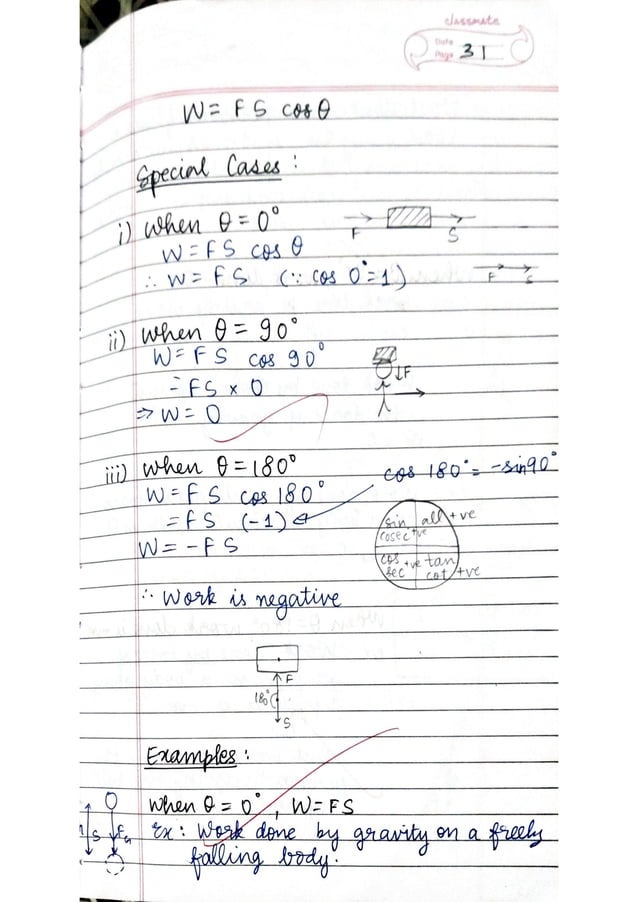 classmate
Date
Page 31
W = F S cos θ
Special Cases :
i) When θ = 0°
F S
W = F S cos θ
∴ W = F S (∵ cos 0° = 1)
F S
ii) When θ = 90°
W = F S cos 90°
↓F
= FS × 0
⇒ W = 0
iii) When θ = 180°
cos 180° = -sin90°
W = F S cos 180°
= FS (-1)
sin, all +ve
cosec +ve
W = - F S
cos +ve tan
sec cot +ve
∴ Work is negative
F
180°
S
Examples :
When θ = 0°, W = FS
S
Ex : Work done by gravity on a freely
falling body.